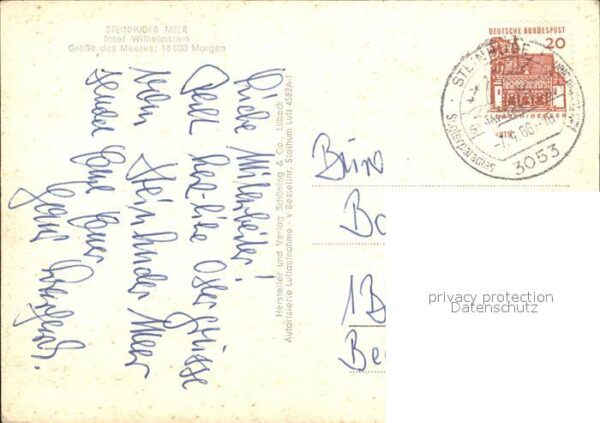 STEINHUDER MEER
Insel Wilhelmstein
Größe des Meeres: 18 000 Morgen
Liebe Mitarbeiter!
Sehr herzliche Ostergrüsse
vom Steinhuder Meer
sendet Ihnen Euer
Hersteller und Verlag Schöning & Co., Lübeck
Autorisierte Luftaufnahme - v Bestellnr. Steihum Luft 4582A-1
DEUTSCHE BUNDESPOST
20
LORSCH/HESSEN
STEINHUDE
3053
Büro
Bo
1B
Be
privacy protection
Datenschutz